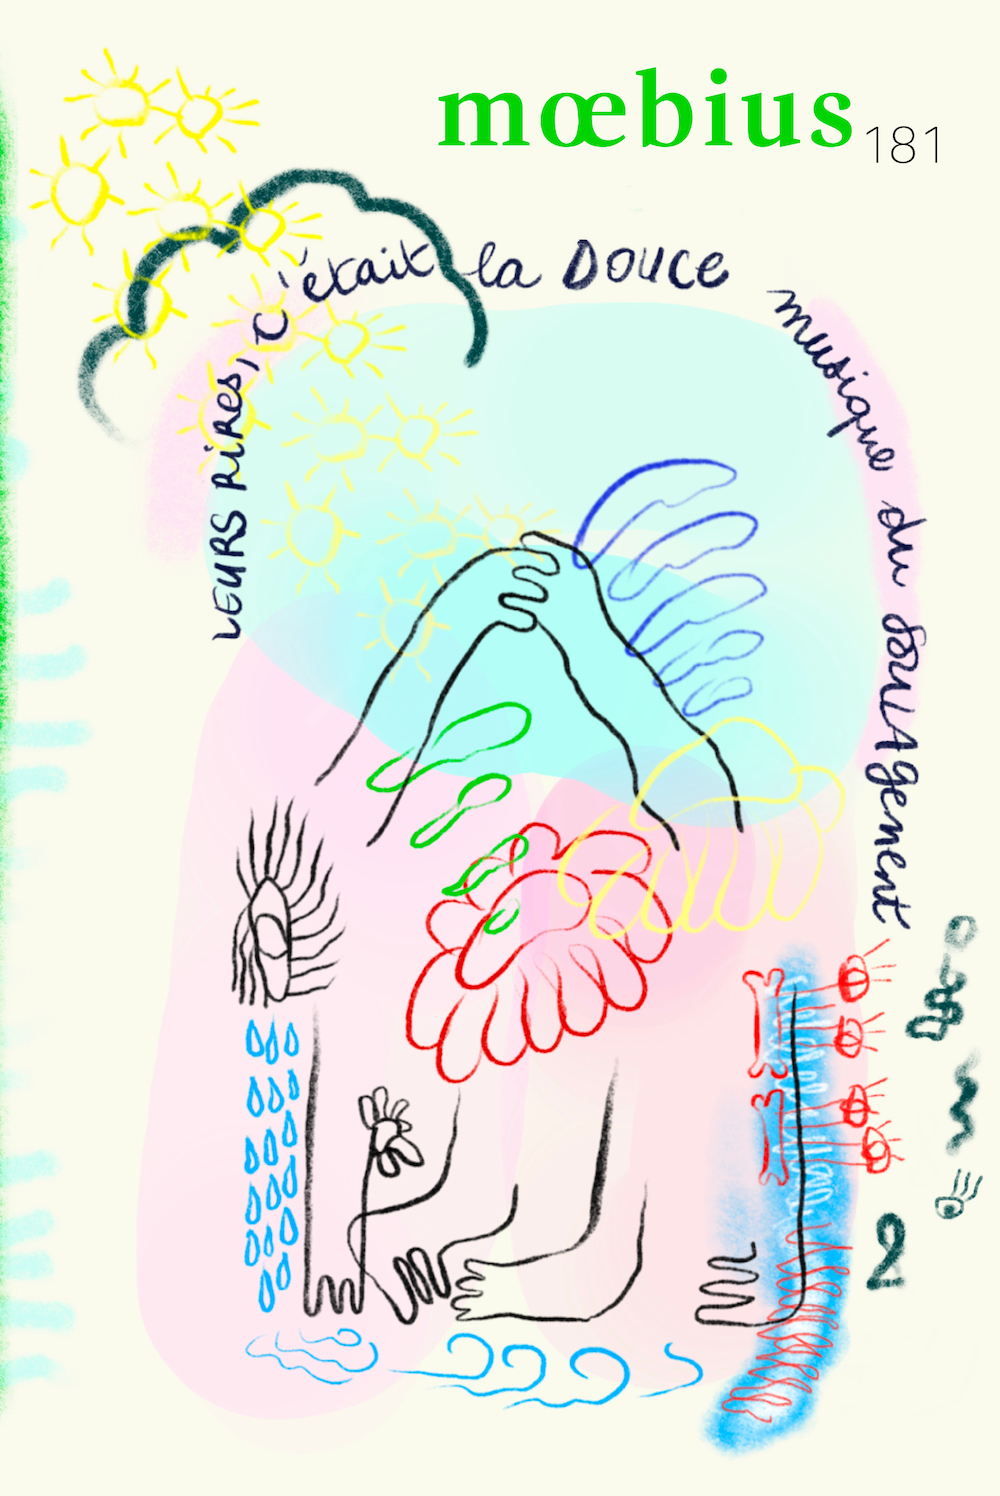 mœbius 181
LEURS RiRes, c'était la DOUCE musique du SOULAgement
2